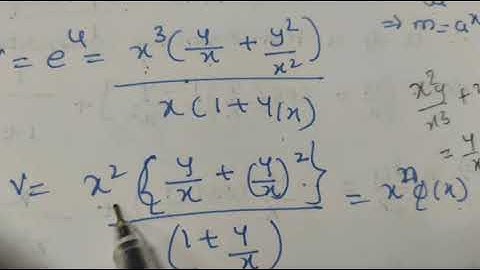 v = e^u = x³(y/x + y²/x²) / x(1+y/x)
⇒ m=a^x
x²y/x³ +
= y/x
v = x² {y/x + (y/x)²} / (1+y/x) = x^n φ(x)